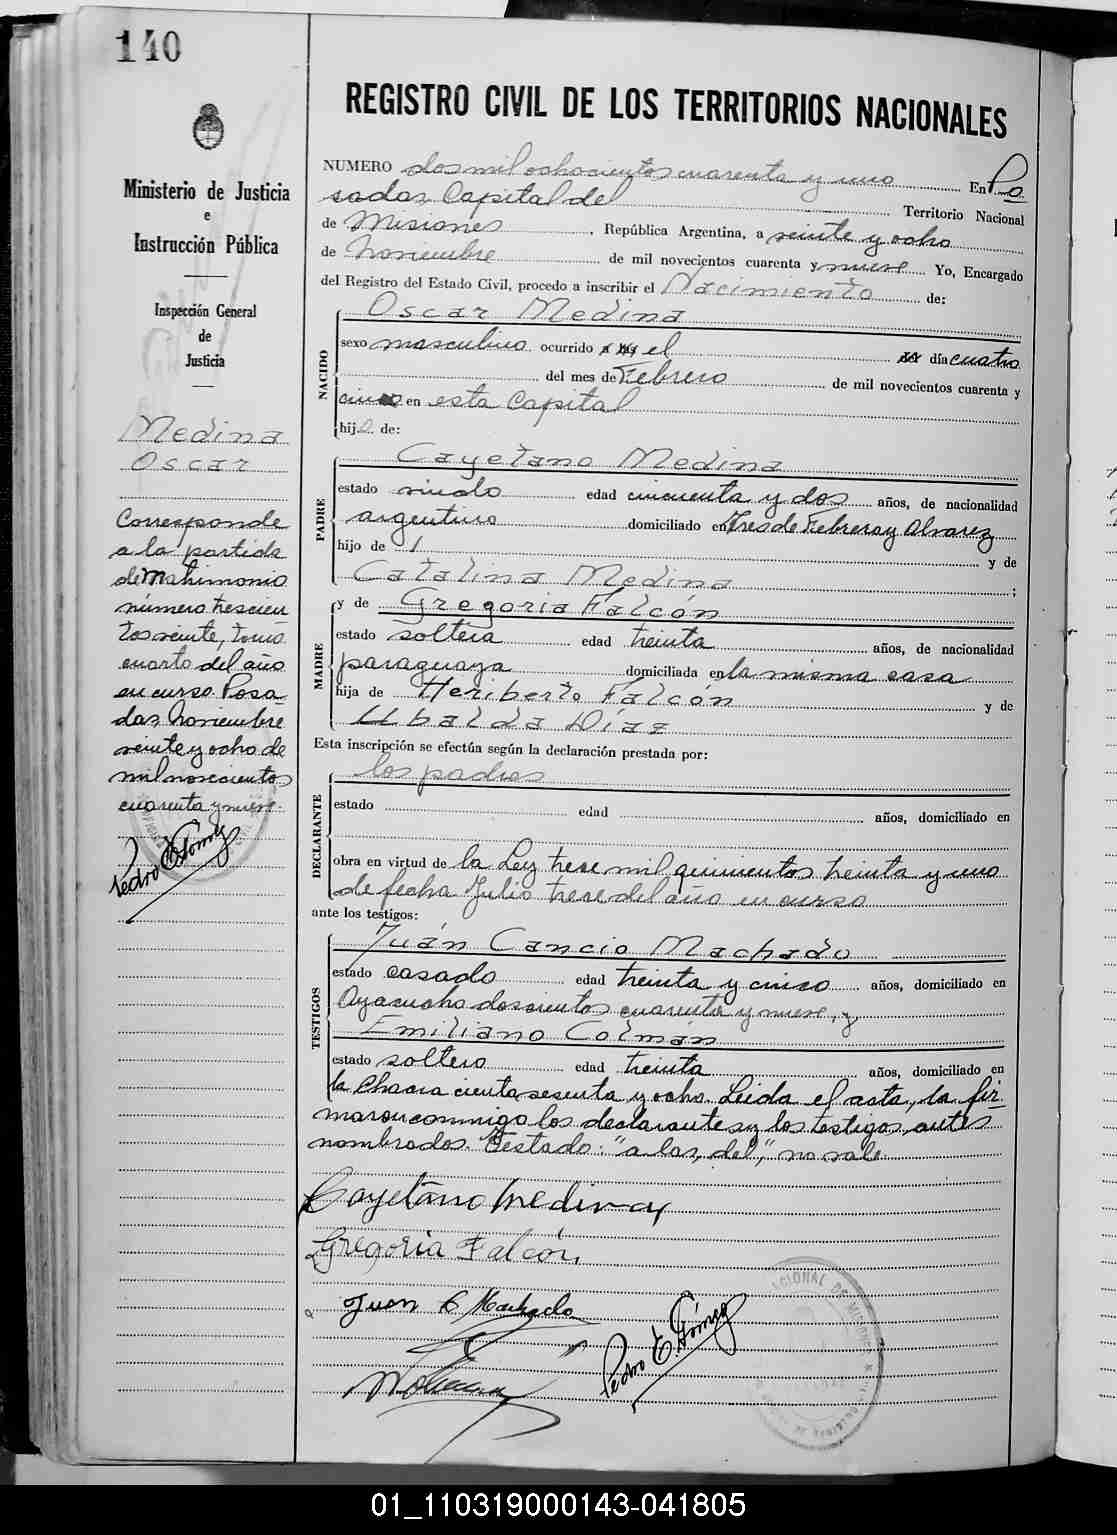 140
Ministerio de Justicia
e
Instrucción Pública
Inspección General
de
Justicia
Medina
Oscar
Corresponde
a la partida
de Matrimonio
número trescien
tos veinte, tomo
cuarto del año
en curso. Posa
das, Noviembre
veinte y ocho de
mil novecientos
cuarenta y nueve.
Pedro E. Gómez
REGISTRO CIVIL DE LOS TERRITORIOS NACIONALES
NUMERO dos mil ochocientos cuarenta y uno En Po
sadas Capital del Territorio Nacional
de Misiones, República Argentina, a veinte y ocho
de Noviembre de mil novecientos cuarenta y nueve Yo, Encargado
del Registro del Estado Civil, procedo a inscribir el Nacimiento de:
NACIDO
Oscar Medina
sexo masculino ocurrido el día cuatro
del mes de Febrero de mil novecientos cuarenta y
cinco en esta Capital
hijo de:
PADRE
Cayetano Medina
estado viudo edad cincuenta y dos años, de nacionalidad
argentino domiciliado en Tres de Febrero y Alvarez
hijo de y de
Catalina Medina ;
MADRE
y de Gregoria Falcón
estado soltera edad treinta años, de nacionalidad
paraguaya domiciliada en la misma casa
hija de Heriberto Falcón y de
Ubalda Díaz
Esta inscripción se efectúa según la declaración prestada por:
DECLARANTE
los padres
estado edad años, domiciliado en
obra en virtud de la Ley trece mil quinientos treinta y uno
de fecha Julio trece del año en curso
ante los testigos:
TESTIGOS
Juán Cancio Machado
estado casado edad treinta y cinco años, domiciliado en
Ayacucho doscientos cuarenta y nueve, y
Emiliano Colmán
estado soltero edad treinta años, domiciliado en
la Chacra ciento sesenta y ocho. Leida el acta, la fir-
maron conmigo los declarantes y los testigos, antes
nombrados. Testado: "a las, del", no vale.
Cayetano Medina
Gregoria Falcón,
Juan C Machado
Pedro E. Gómez
01_110319000143-041805